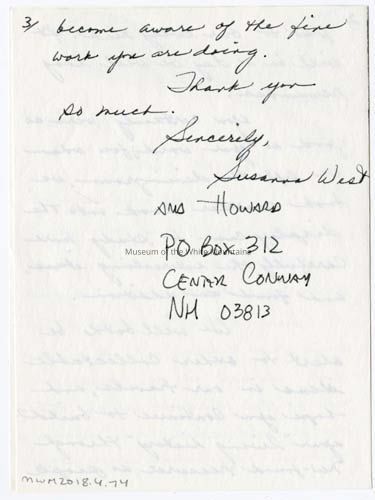 3/ become aware of the fine
work you are doing.
Thank you
so much.
Sincerely,
Susanna West
AND HOWARD
PO BOX 312
CENTER CONWAY
NH 03813
Museum of the White Mountains
MWM2018.4.74